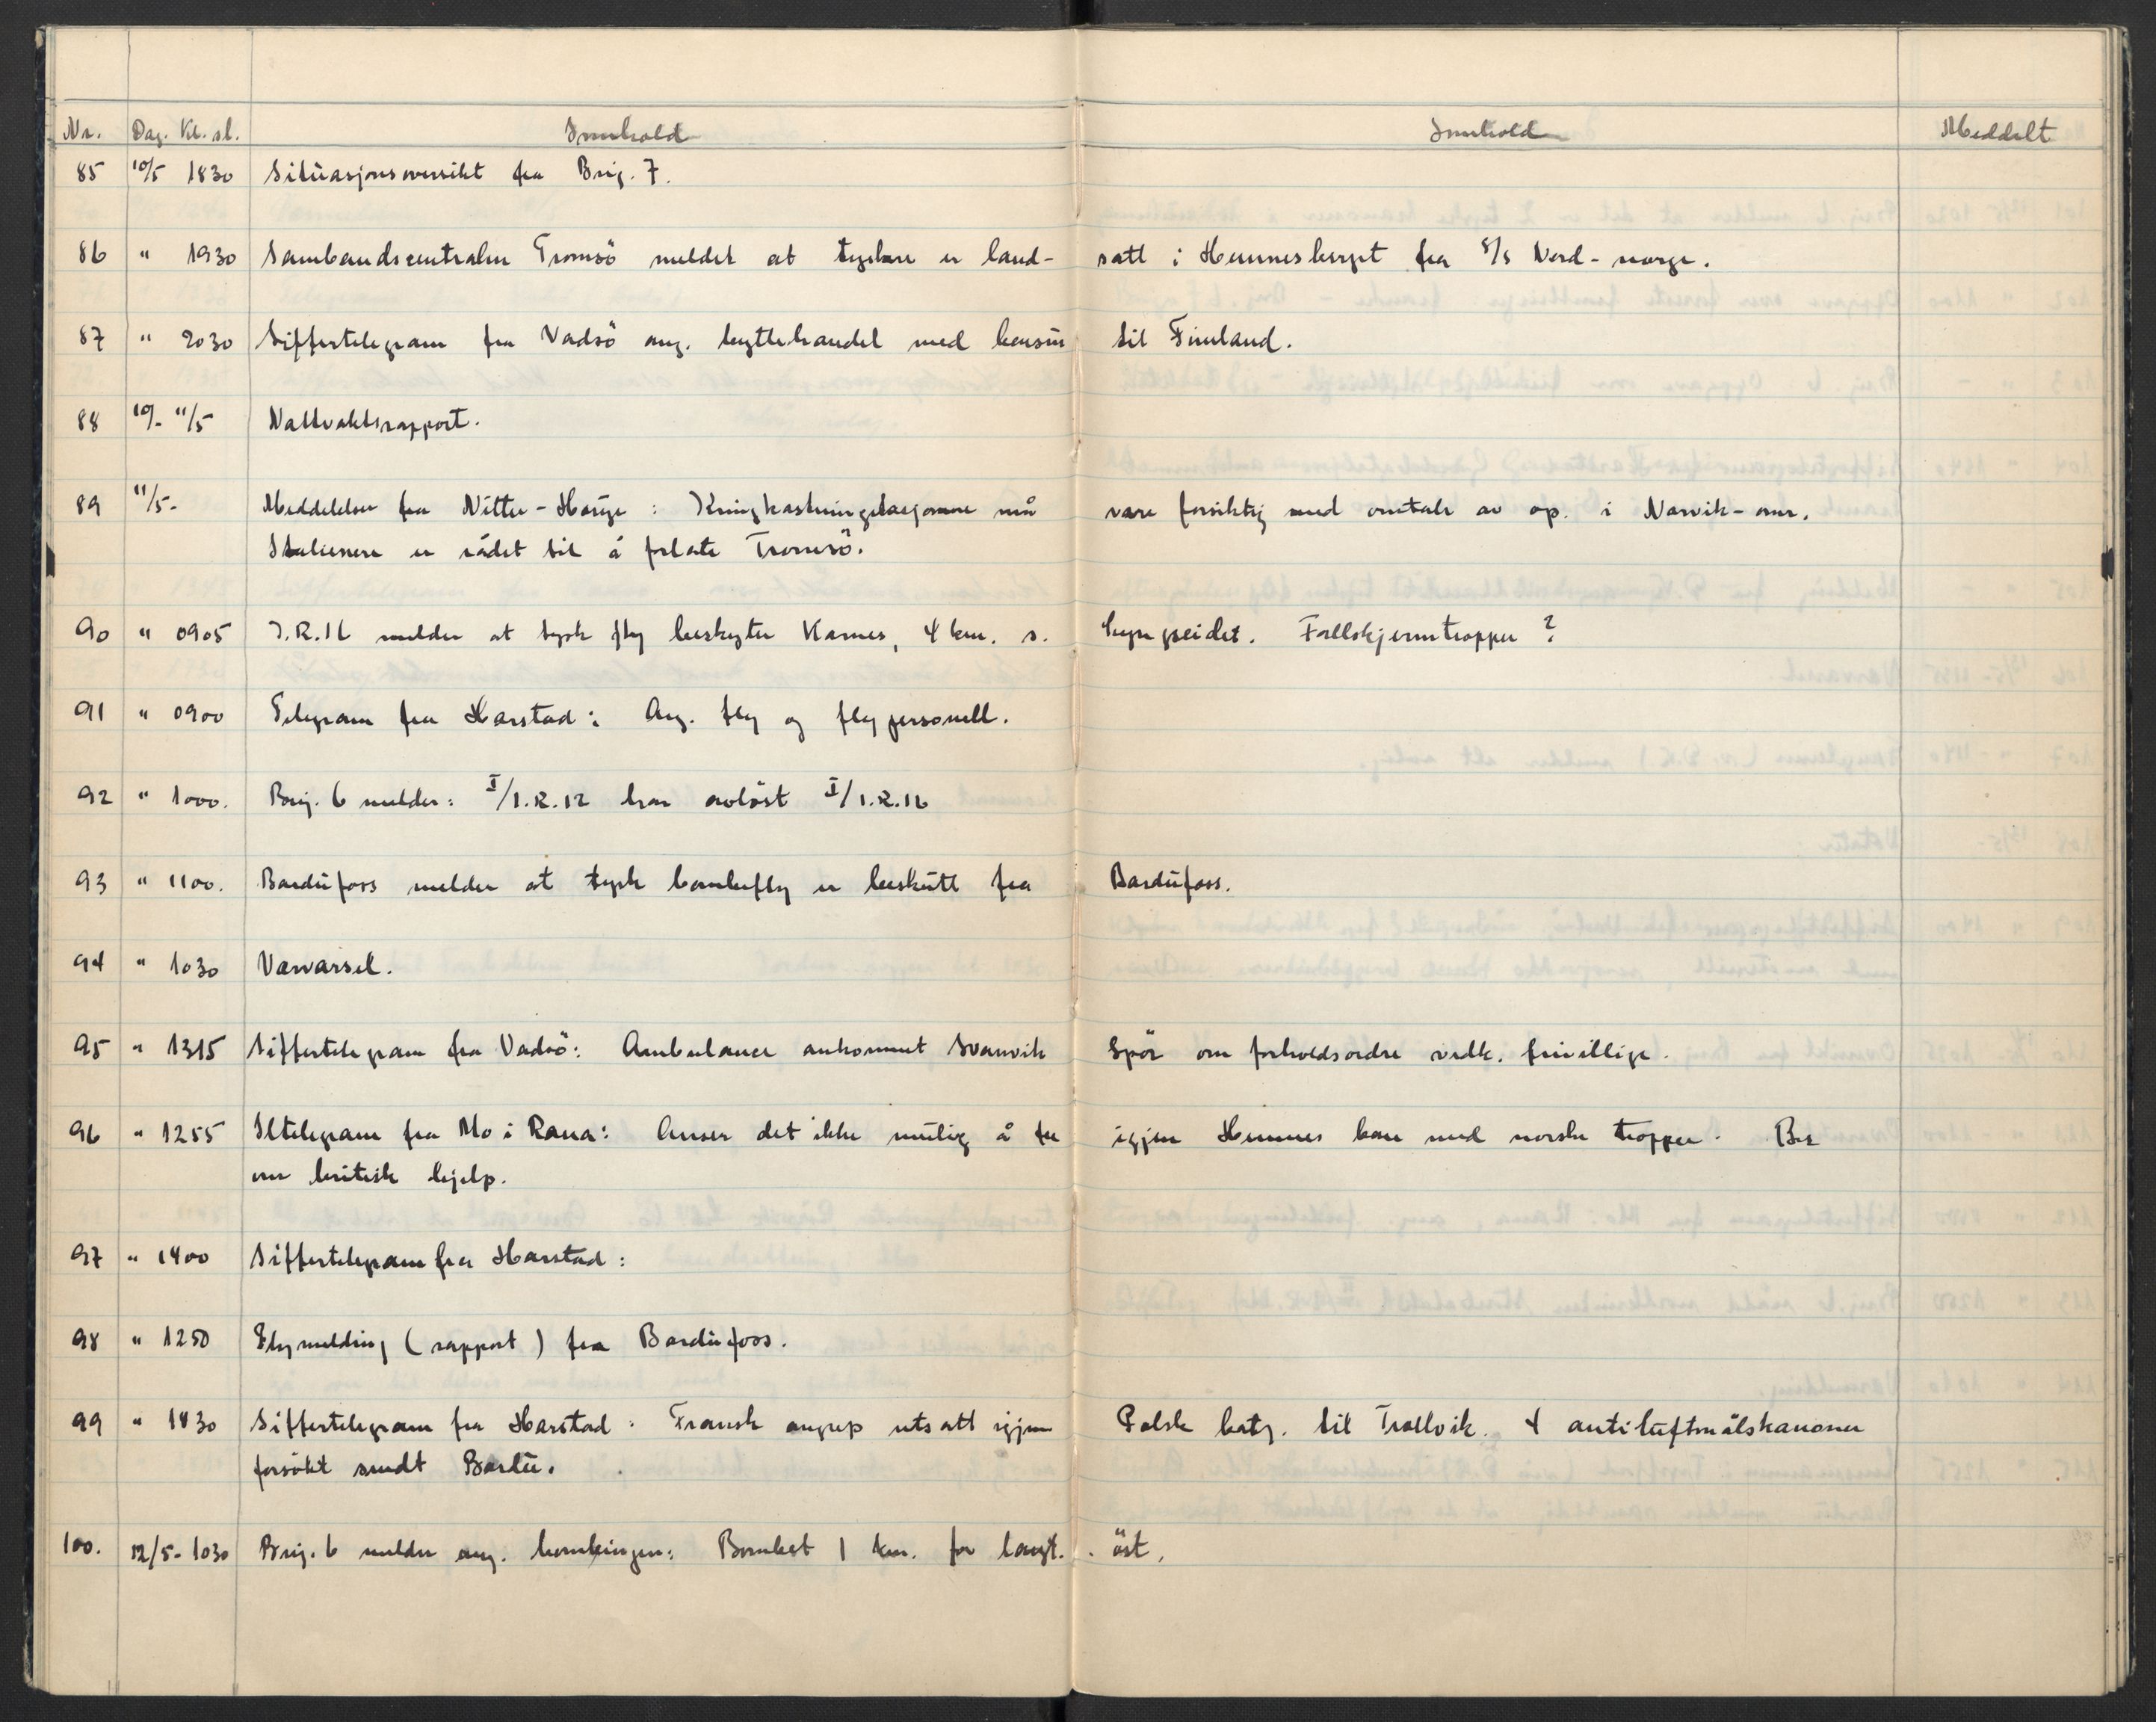 Nr. Dag. Kl.sl. Innhold Innhold Meddelt
85 10/5 1830 Situasjonsoversikt fra Brig. 7.
86 " 1930 Sambandscentralen Tromsö meldet at tyskere er land- satt i Hemnesberget fra S/S Nord-norge.
87 " 2030 Siffertelegram fra Vadsö ang. byttehandel med bensin til Finland.
88 10/- 11/5 Nattvaktsrapport.
89 11/5- Meddelelser fra Nitter-Hauge: Kringkastningstasjonene må være forsiktig med omtale av op. i Narvik-omr.
Italienere er rådet til å forlate Tromsö.
90 " 0905 I.R.16 melder at tysk fly beskyter Karnes, 4 km. s. Lyngseidet. Fallskjermtropper?
91 " 0900 Telegram fra Harstad: Ang. fly og flypersonell.
92 " 1000. Brig. 6 melder: I/I.R.12 har avlöst I/I.R.16
93 " 1100. Bardufoss melder at tysk bombefly er beskutt fra Bardufoss.
94 " 1030 Værvarsel.
95 " 1315 Siffertelegram fra Vadsö: Ambulance ankommet Svanvik Spör om forholdsordre vedk. frivillige.
96 " 1255 Iltelegram fra Mo i Rana: Anser det ikke mulig å ta igjen Hemnes bare med norske tropper. Ber
om britisk hjelp.
97 " 1400 Siffertelegram fra Harstad:
98 " 1250 Flymelding (rapport) fra Bardufoss.
99 " 1830 Siffertelegram fra Harstad: Fransk angrep utsatt igjen Polsk batj. til Trollvik. 4 antiluftmålskanoner
forsökt sendt Bardu.
100. 12/5- 1030 Brig. 6 melder ang. bombingen: Bombet 1 km. for langt. öst.